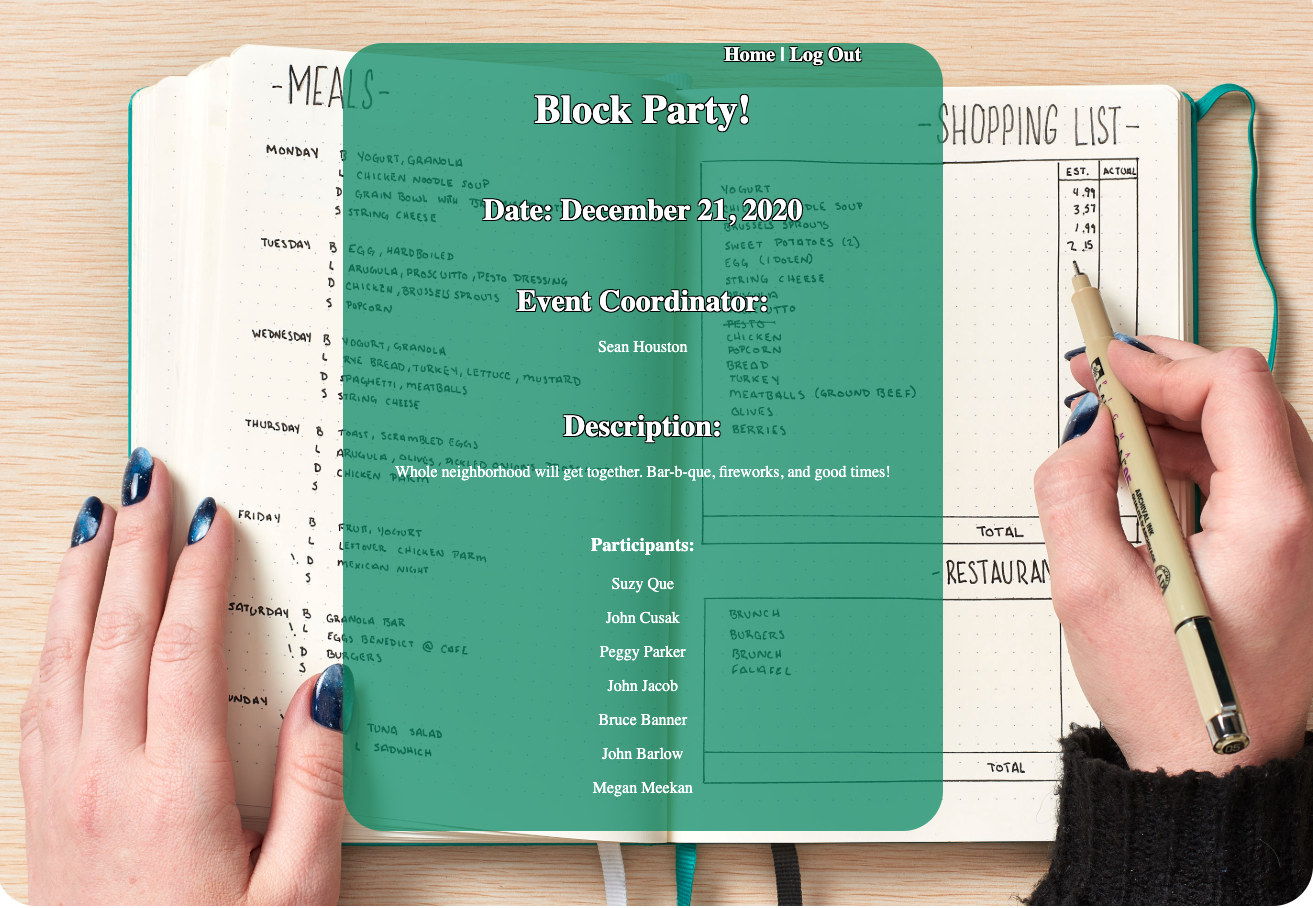 Home | Log Out
Block Party!
Date: December 21, 2020
Event Coordinator:
Sean Houston
Description:
Whole neighborhood will get together. Bar-b-que, fireworks, and good times!
Participants:
Suzy Que
John Cusak
Peggy Parker
John Jacob
Bruce Banner
John Barlow
Megan Meekan
-MEALS-
MONDAY B YOGURT, GRANOLA
L CHICKEN NOODLE SOUP
D GRAIN BOWL WITH
S STRING CHEESE
TUESDAY B EGG, HARDBOILED
L ARUGULA, PROSCUITTO, PESTO DRESSING
D CHICKEN, BRUSSELS SPROUTS
S POPCORN
WEDNESDAY B YOGURT, GRANOLA
L RYE BREAD, TURKEY, LETTUCE, MUSTARD
D SPAGHETTI, MEATBALLS
S STRING CHEESE
THURSDAY B TOAST, SCRAMBLED EGGS
L ARUGULA, OLIVES, PICKLED
D CHICKEN PARM
S
FRIDAY B FRUIT, YOGURT
L LEFTOVER CHICKEN PARM
! D MEXICAN NIGHT
S
SATURDAY B GRANOLA BAR
! L EGGS BENEDICT @ CAFE
! D BURGERS
S
UNDAY
TUNA SALAD
L SADWHICH
-SHOPPING LIST-
EST. ACTUAL
YOGURT 4.99
DLE SOUP 3.57
BRUSSELS SPROUTS 1.99
SWEET POTATOES (2) 2.15
EGG (1 DOZEN)
STRING CHEESE
PESTO
CHICKEN
POPCORN
BREAD
TURKEY
MEATBALLS (GROUND BEEF)
OLIVES
BERRIES
TOTAL
-RESTAURAN
BRUNCH
BURGERS
BRUNCH
FALAFEL
TOTAL
ARCHIVAL INK
05